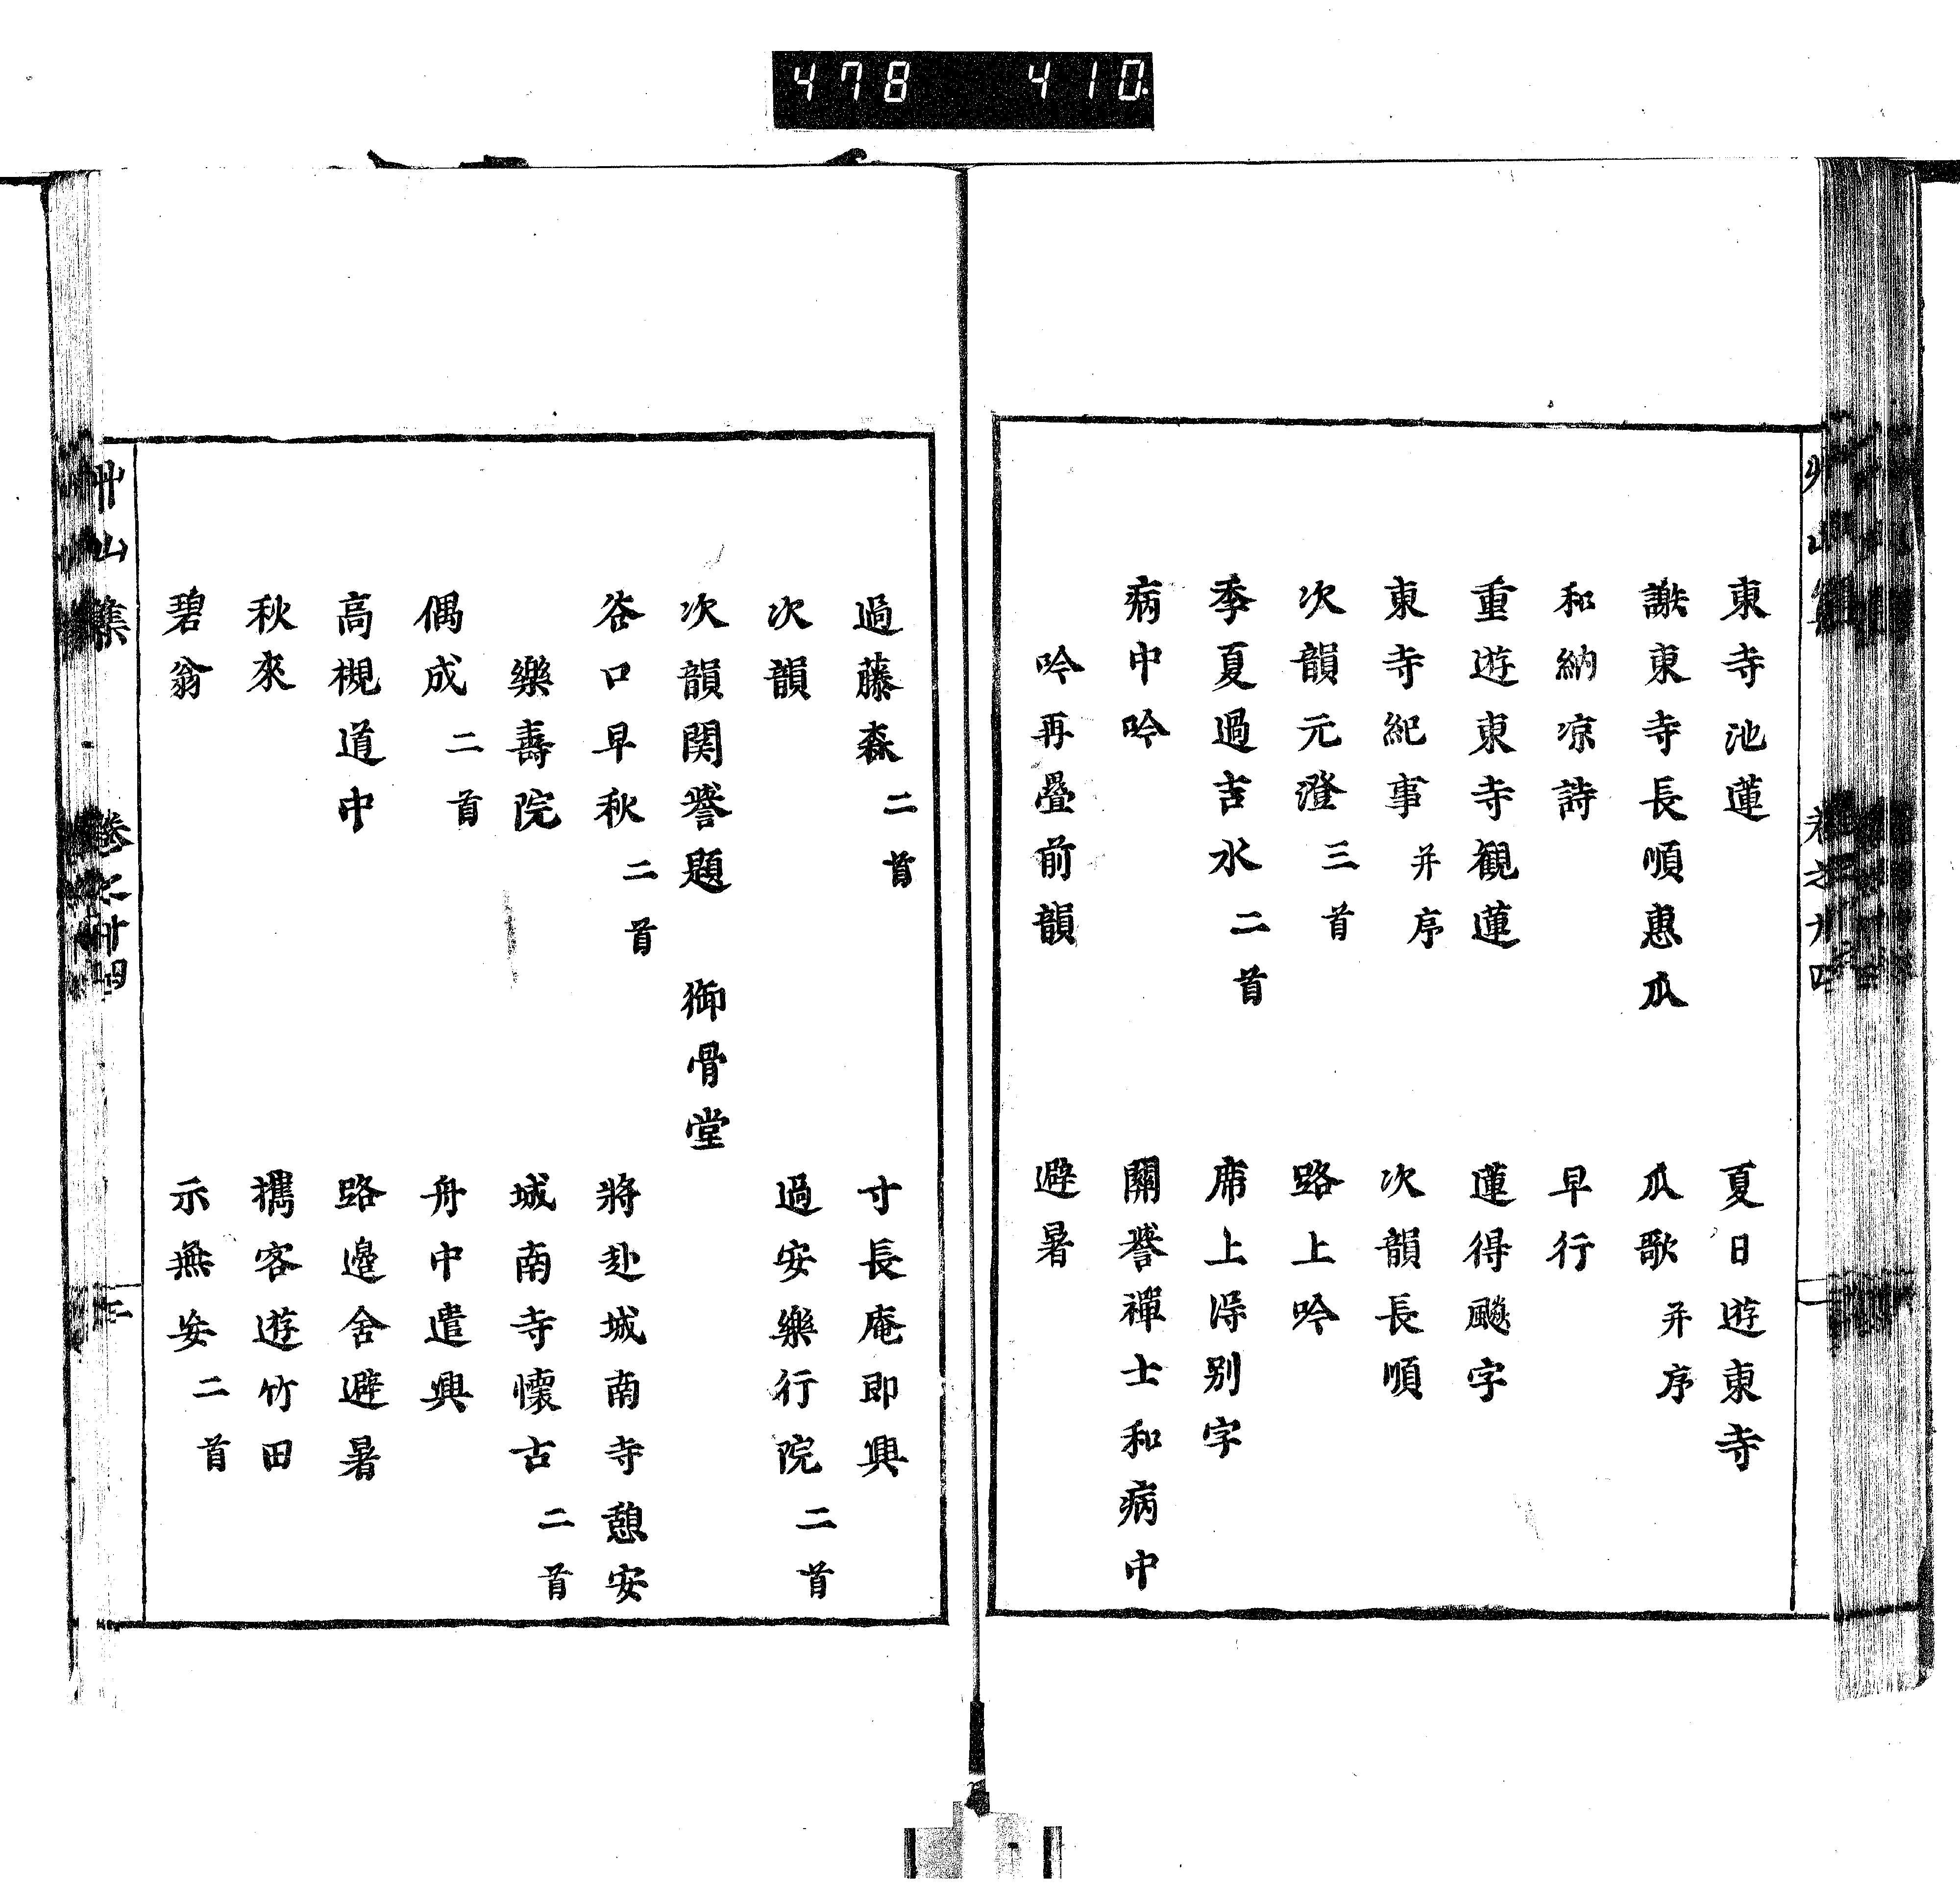 478 410
東寺池蓮 夏日遊東寺
謝東寺長順惠瓜 瓜歌并序
和納凉詩 早行
重遊東寺觀蓮 蓮得颸字
東寺紀事并序 次韻長順
次韻元澄三首 路上吟
季夏過吉水二首 席上得別字
病中吟 關譽禪士和病中
吟再疊前韻 避暑
過藤森二首 寸長庵即興
次韻 過安樂行院二首
次韻関譽題 御骨堂
谷口早秋二首 將赴城南寺憩安
樂壽院 城南寺懷古二首
偶成二首 舟中遣興
高槻道中 路邊舍避暑
秋來 攜客遊竹田
碧翁 示無妄二首
艸山集 卷之廿四 三